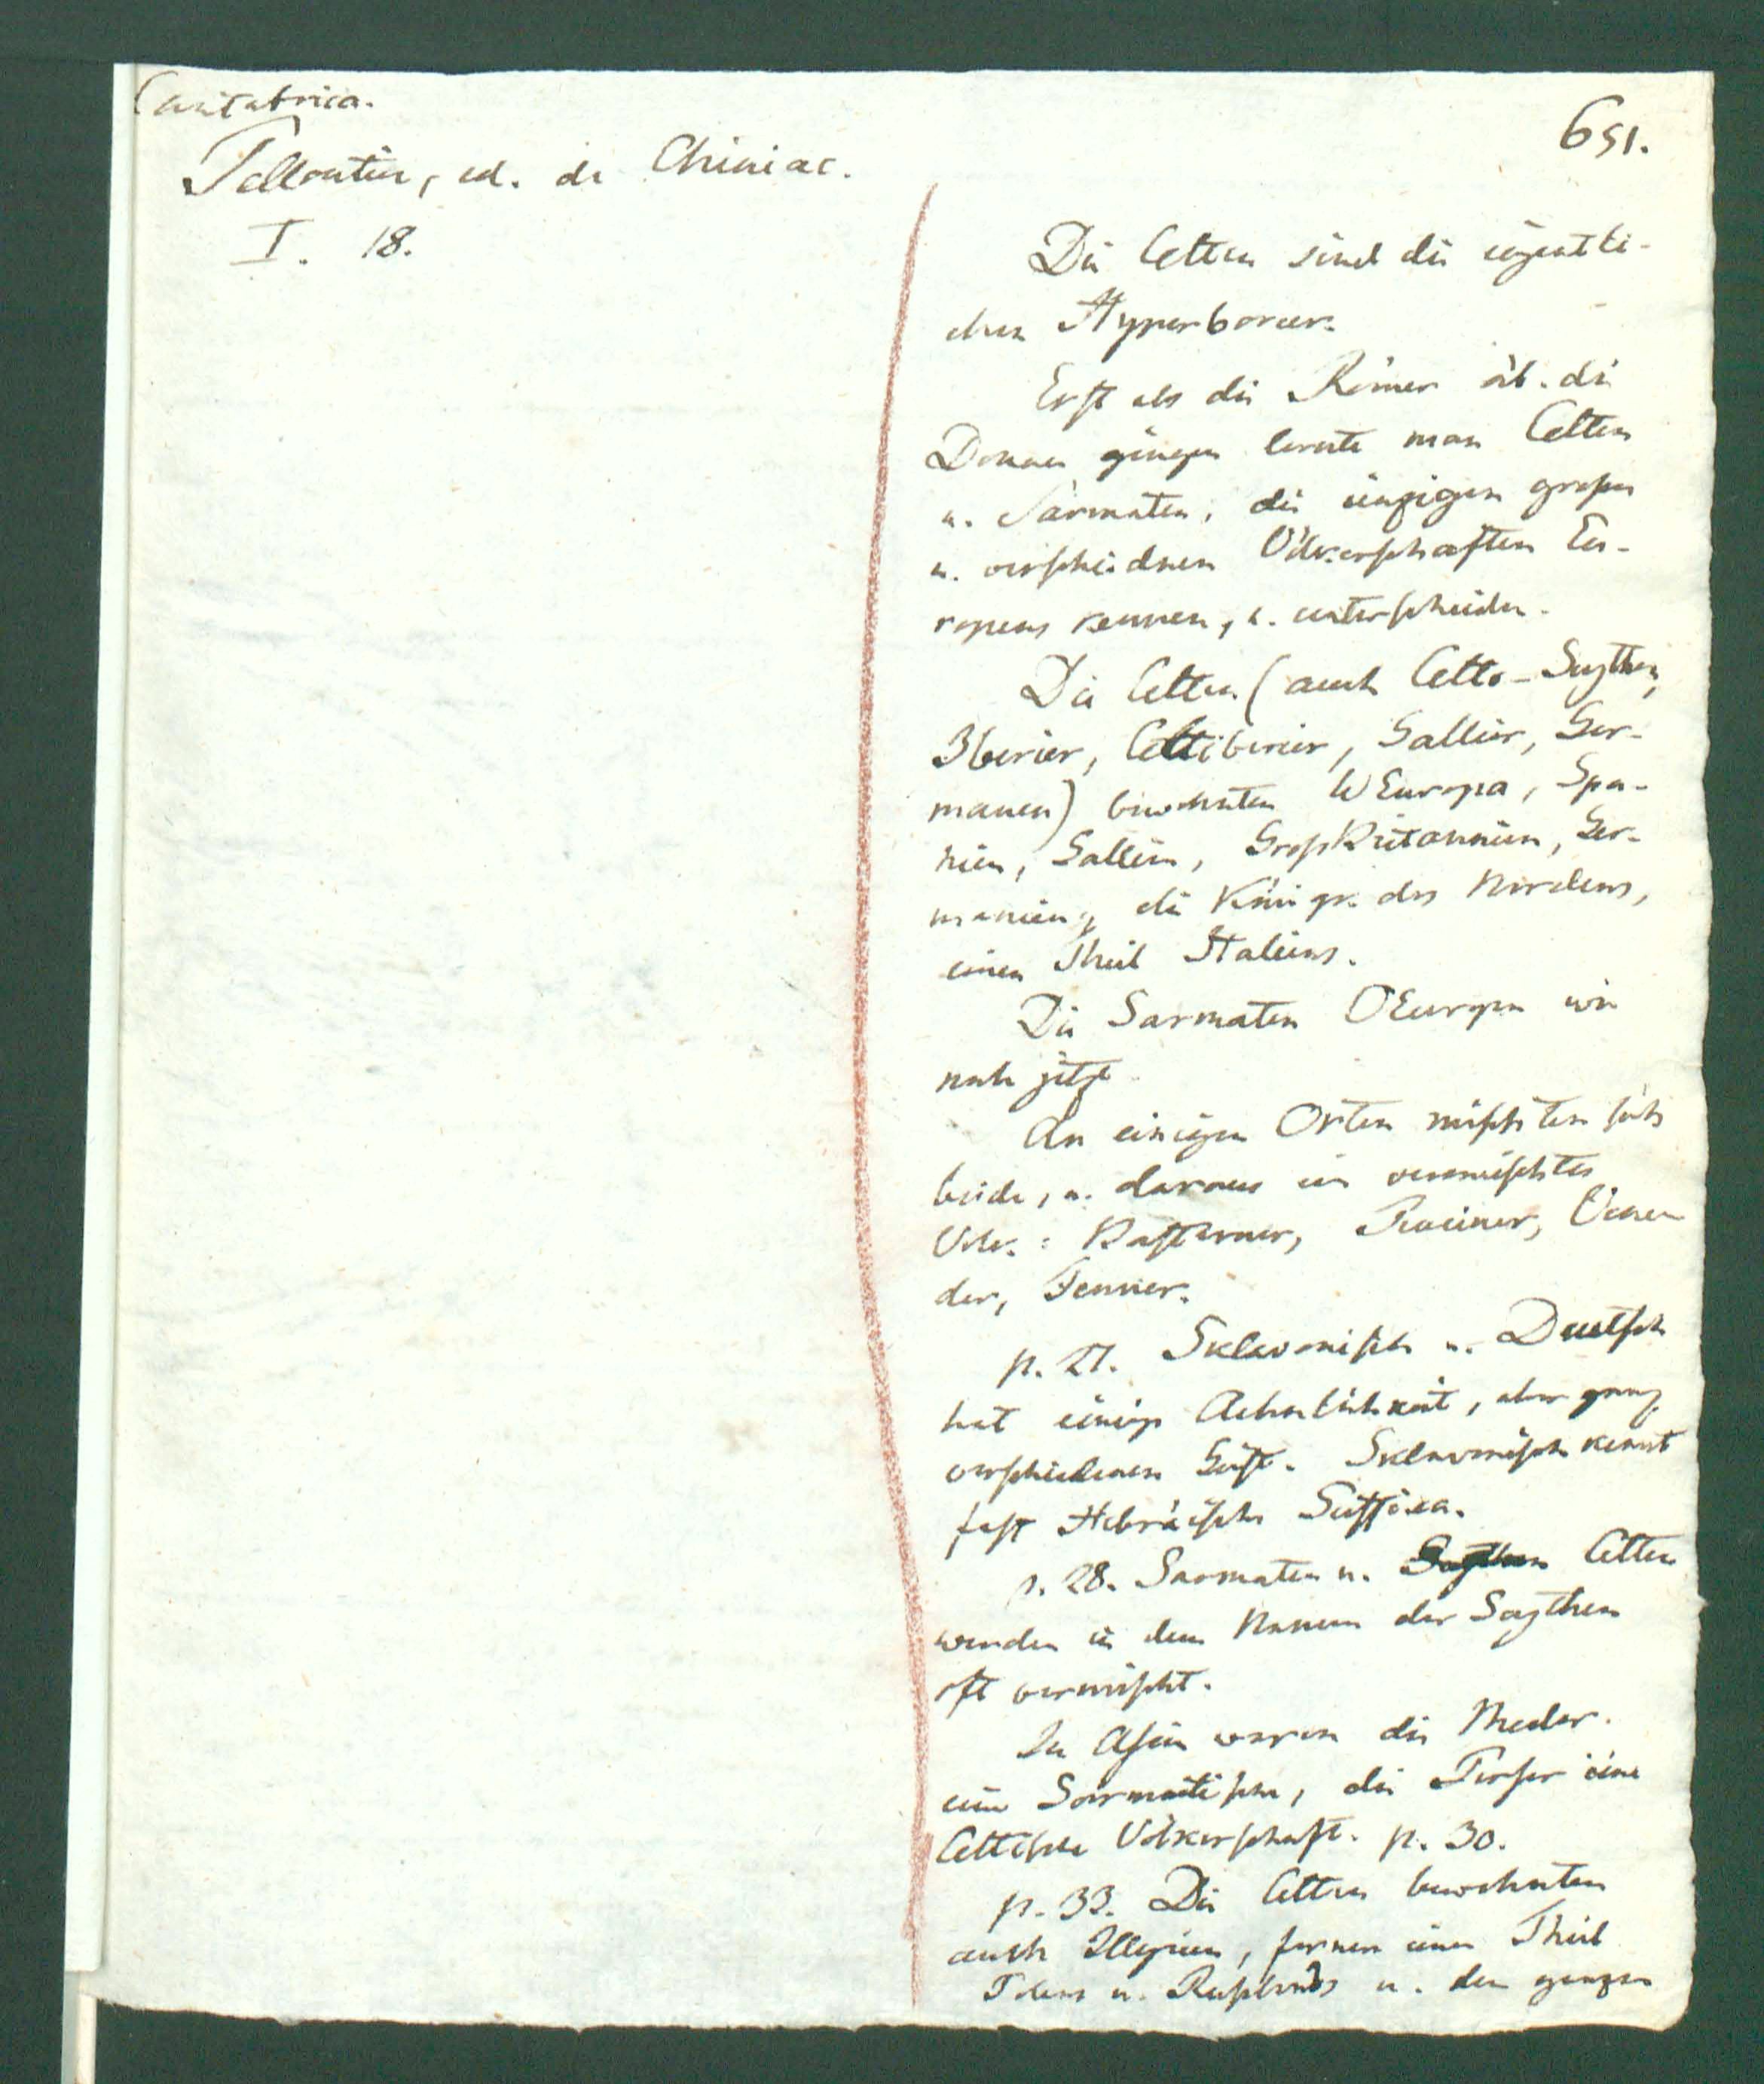 Cantabrica.
651.
Pelloutier, ed. de Chiniac.
I. 18.
Die Celten sind die eigentli-
chen Hyperboreer.
Erst als die Römer üb. die
Donau gingen lernte man Celten
u. Sarmaten, die einzigen großen
u. verschiednen Völkerschaften Eu-
ropens kennen, u. unterscheiden.
Die Celten (auch Celto-Scythen,
Iberier, Celtiberier, Gallier, Ger-
manen) bewohnten WEuropa, Spa-
nien, Gallien, GroßBritannien, Ger-
manien, die Königr. des Nordens,
einen Theil Italiens.
Die Sarmaten OEuropa wie
noch jetzt.
An einigen Orten mischten sich
beide, u. daraus ein vermischtes
Volk: Bastarner, Peuciner, Vene-
der, Fenner.
p. 27. Sklavonisch u. Deutsch
hat einige Aehnlichkeit, aber ganz
verschiedenen Geist. Sklavonisch kennt
fast Hebräische Suffixa.
p. 28. Sarmaten u. Scythen Celten
werden in dem Namen der Scythen
oft vermischt.
In Asien waren die Meder
eine Sarmatische, die Perser eine
Celtische Völkerschaft. p. 30.
p. 33. Die Celten bewohnten
auch Illyrien, ferner einen Theil
Polens u. Rußlands u. den ganzen